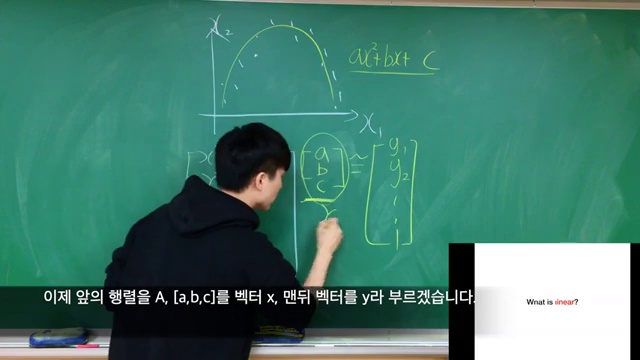 x₂
ax²+bx+ c
x₁
a
b
c
≅
y₁
y₂
x
이제 앞의 행렬을 A, [a,b,c]를 벡터 x, 맨뒤 벡터를 y라 부르겠습니다.
What is linear?